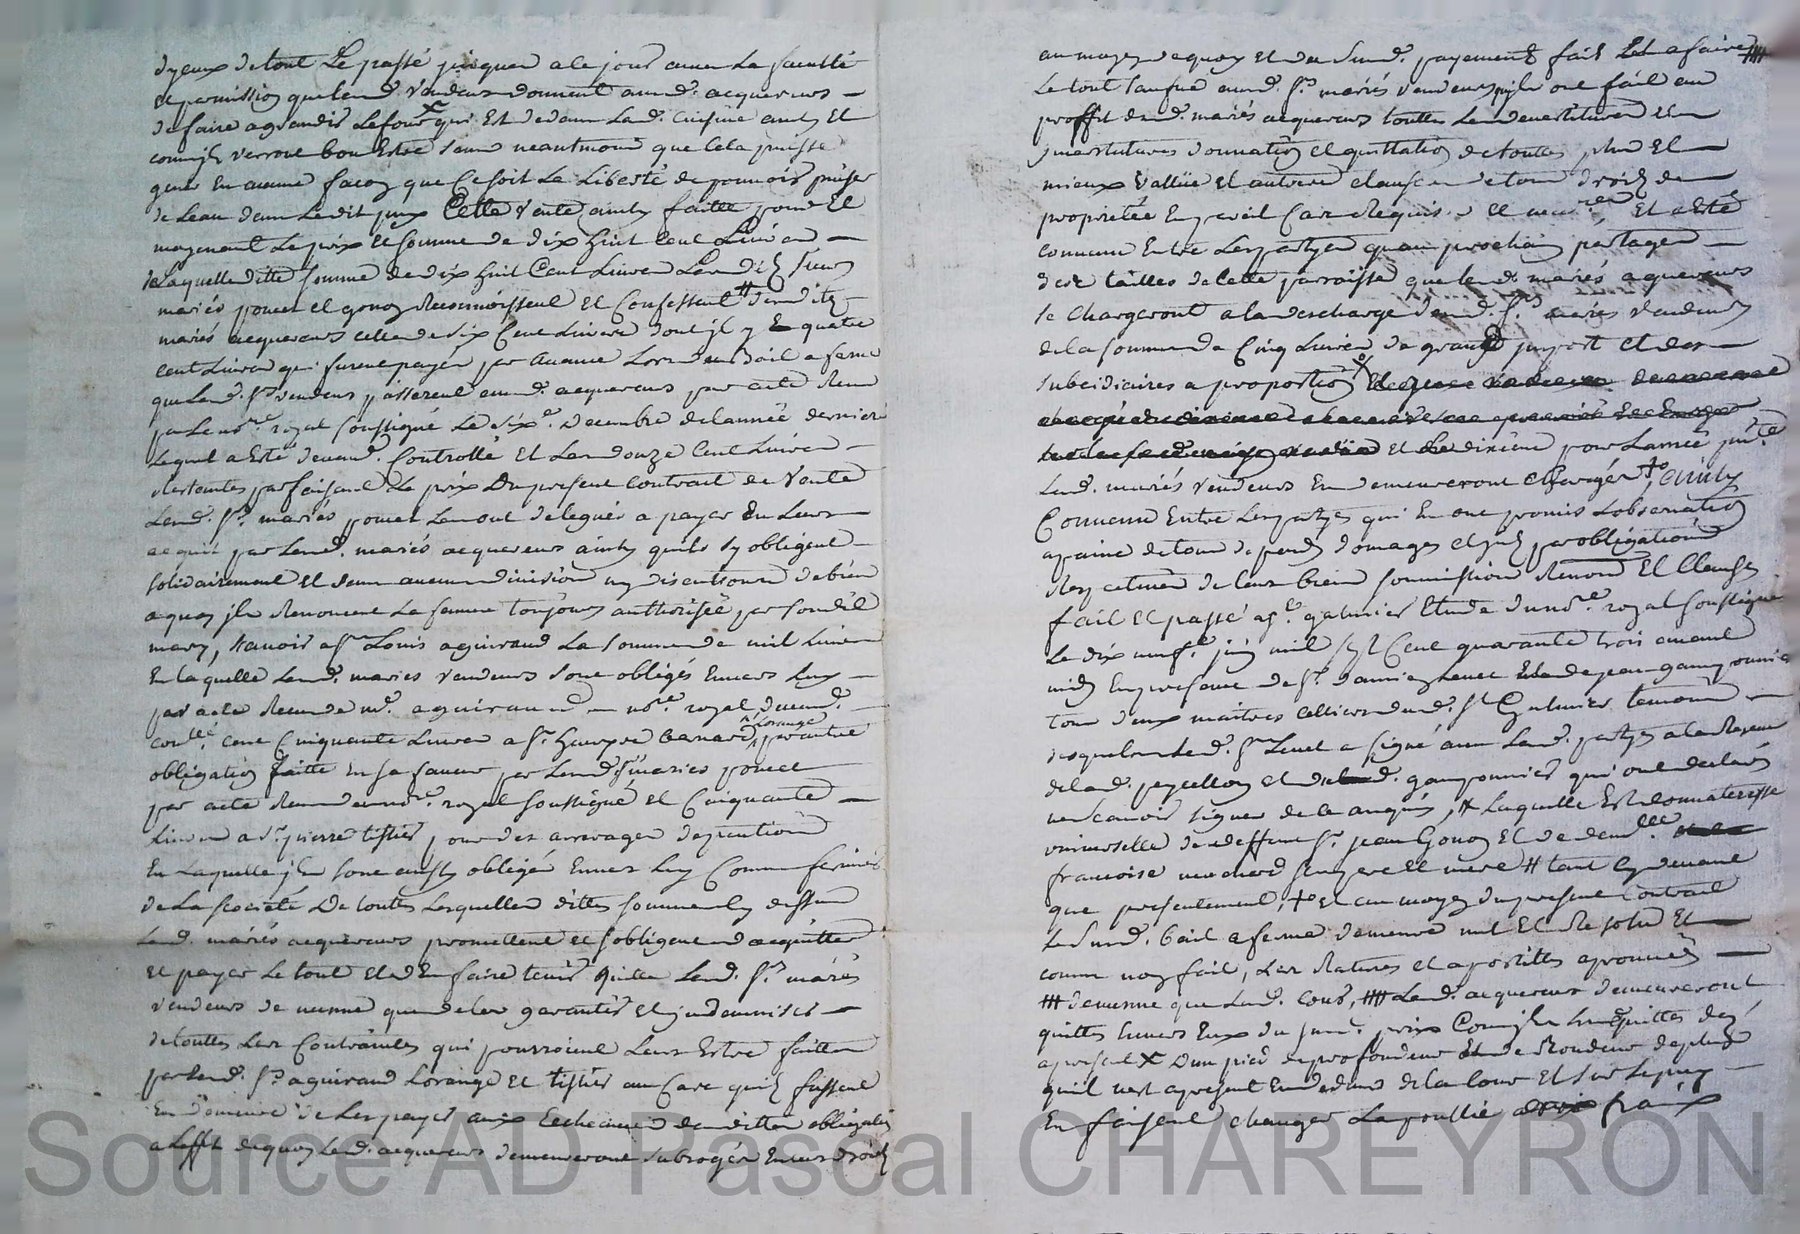 d'yceux de tout le passé jusques a ce jour avec la faculté
et permission que lesd. vendeurs donnent auxd. acquereurs
de faire agrandir le four X qui est dedans lad. cuisine ainsy et
comm'ils verront bon estre sans neantmoins que cela puisse
gener en aucune facon que ce soit la liberté de pouvoir puiser
de leau dans ledit puy Cette vente ainsy faitte pour et
moyenant le prix et somme de dix huit cent livres
de laquelle ditte somme de dix huit cent livres lesdits sieurs
mariés poncet et gonon reconnoissent et confessent # desdits
mariés acquereurs celle de six cent livres dont il y e quatre
cent livres qui furent payes par avance lors du bail a ferme
que lesd. srs vendeurs passerent auxd. acquereurs par acte reçu
par le nore. royal soussigné le six e. decembre de lannée derniere
lequel a esté devem.. controllé et les douze cent livres
restantes parfaisant le prix du present contrat de vente
lesd. srs mariés poncet les ont delegués a payer en leurs
acquit par lesd. mariés acquereurs ainsy quils sy obligent
solidairement et sans aucune division ny discutions de biens
a quoy ils renoncent la femme toujours authorisée par sondit
mary, scavoir a sr Louis aguiraud la somme de mil livres
en laquelle lesd. mariés vendeurs sont obligés envers luy
par acte reçu de me. aguiraud nore. royal
conllé. cent cinquante livres a sr benard Lorange par autre
obligation faitte en sa faveur par lesd. srs mariés poncet
par acte reçu dud. nore. royal soussigné et cinquante
livres a sr pierre tissier pour des arrerages de pention
en laquelle ils sont aussy obligés envers luy comme fermier
de la societé de touttes lesquelles dittes sommes cy dessus
lesd. mariés acquereurs promettent et sobligent acquitter
et payer le tout et d'en faire tenir quitte lesd. srs mariés
vendeurs de meme que de les garantir et indemniser
de touttes les contraintes qui pourroient leurs estre faittes
par lesd. srs aguiraud Lorange et tissier au cas quils fussent
en demeure de les payer aux echeances desdittes obligations
a leffet de quoy lesd. acquereurs demeureront subrogés en leurs droits
au moyen de quoy et du susd. payement fait et a faire ####
le tout sauf auxd. srs mariés vendeurs ils ont fait au
proffit desd. mariés acquereurs touttes les devestitures et
investitures donnation et quittation de toutes plus et
mieux vallüe et autres clauses de tous droits de
proprietée en pareil cas requis et et a esté
convenu entre les partyes quau prochain partages
des tailles de cette parroisse que lesd. mariés acquereurs
se chargeront a la descharge desd. srs mariés vendeurs
de la somme de cinq livres de grand import et des
subcidiaires a proportion
et le dixieme pour lannée pnte.
lesd. mariés vendeurs en demeureront chargés +o ainsy
convenu entre les partyes qui en ont promis lobservation
a paine de tous depens domages et jnts par obligations
respectives de leurs biens soumissions renons et clauses
fait et passé a st. galmier Etude du nore. royal soussigné
le dix neuf e. juin mil sept cent quarante trois avant
midy en presence de sr. damien Levet et de jean gamponnier
tous deux maitres celliers dud. st Galmier temoins
desquels led. sr Levet a signé avec lesd. partyes a la reserve
de lad. peycellon et dud. gamponnier qui ont declarés
ne scavoir signer de ce enquis, # laquelle est donnateresse
universelle de deffunt sr. jean Gonon et de demlle.
francoise marchand ses pere et mere # tant cy devant
que presentement, +o et au moyen du present contrat
le susd. bail a ferme demeure nul et resolu et
comme non fait, les ratures et apostilles aprouvés
### de meme que lesd. cens, #### lesd. acquereurs demeureront
quittes envers eux du susd. prix comm'ils sen quittes des
apresent X dun pied de profondeur et de rondeur de plus
quil nest apresent en dedans de la cour et sur le puy
en faisant changer la poullie a frais
Source AD Pascal CHAREYRON